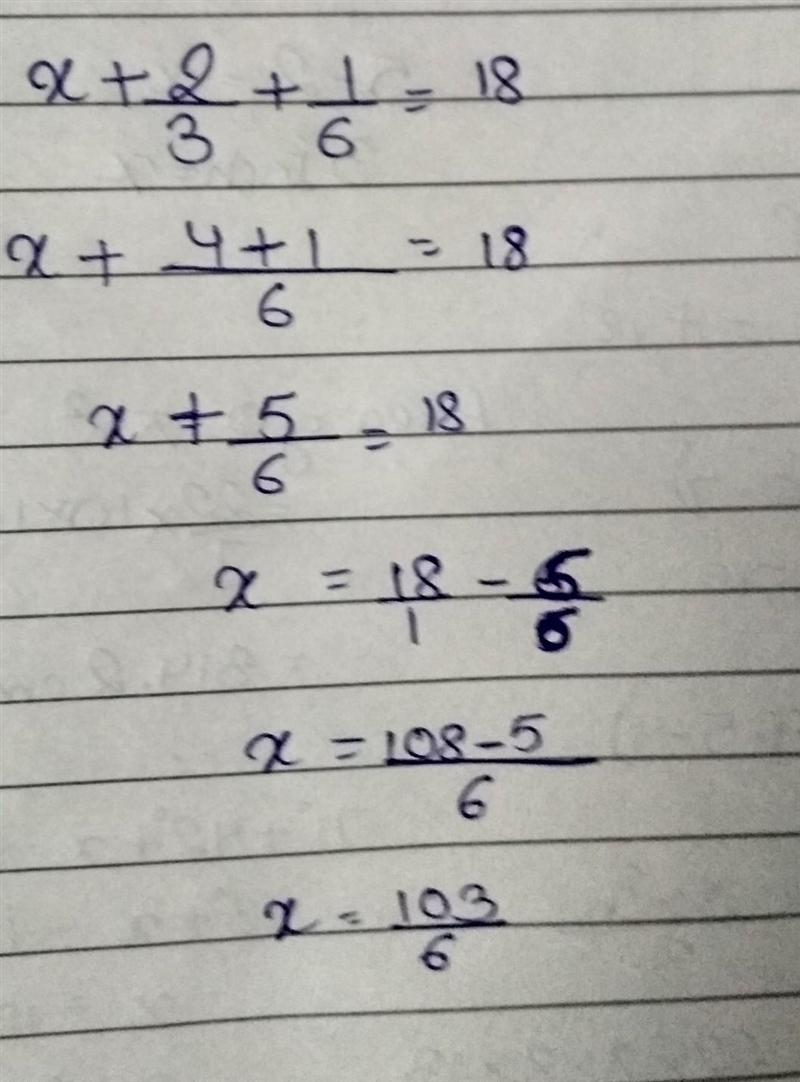 x + 2/3 + 1/6 = 18
x + 4+1/6 = 18
x + 5/6 = 18
x = 18/1 - 5/6
x = 108-5/6
x = 103/6